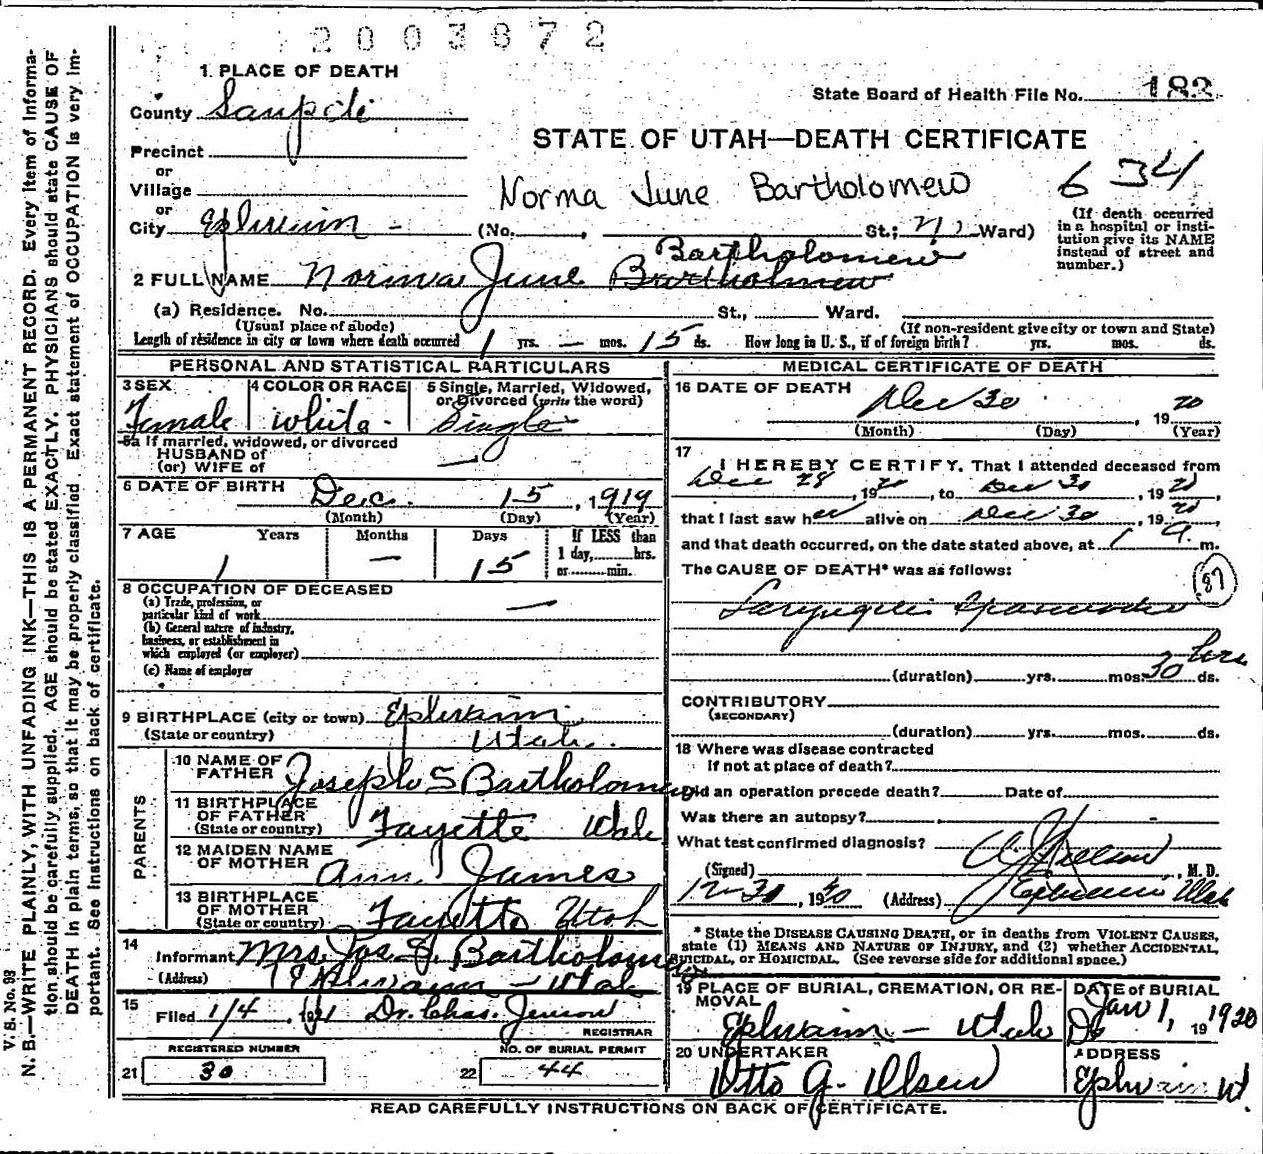 2003672
1 PLACE OF DEATH
County Sanpete
State Board of Health File No. 183
STATE OF UTAH—DEATH CERTIFICATE
Precinct
or
Village
Norma June Bartholomew 634
or
City Ephraim - (No. , St.; Ward)
(If death occurred in a hospital or institution give its NAME instead of street and number.)
Bartholomew
2 FULL NAME Norma June Bartholmew
(a) Residence. No. St., Ward.
(Usual place of abode) (If non-resident give city or town and State)
Length of residence in city or town where death occurred 1 yrs. — mos. 15 ds. How long in U. S., if of foreign birth? yrs. mos. ds.
PERSONAL AND STATISTICAL PARTICULARS
3 SEX 4 COLOR OR RACE 5 Single, Married, Widowed, or Divorced (write the word)
Female White Single
5a If married, widowed, or divorced
HUSBAND of
(or) WIFE of —
6 DATE OF BIRTH Dec. 15, 1919
(Month) (Day) (Year)
7 AGE Years Months Days If LESS than
1 day, hrs.
or min.
1 — 15
8 OCCUPATION OF DECEASED
(a) Trade, profession, or
particular kind of work —
(b) General nature of industry,
business, or establishment in
which employed (or employer)
(c) Name of employer
9 BIRTHPLACE (city or town) Ephraim
(State or country) Utah.
PARENTS
10 NAME OF FATHER Joseph S Bartholomew
11 BIRTHPLACE OF FATHER
(State or country) Fayette Utah
12 MAIDEN NAME OF MOTHER Ann James
13 BIRTHPLACE OF MOTHER
(State or country) Fayette Utah
14 Informant Mrs. Jos. S. Bartholomew
(Address) Ephraim - Utah
15 Filed 1/4, 1921 Dr. Chas. Jenson
REGISTRAR
REGISTERED NUMBER NO. OF BURIAL PERMIT
21 30 22 44
MEDICAL CERTIFICATE OF DEATH
16 DATE OF DEATH Dec 30, 1920
(Month) (Day) (Year)
17 I HEREBY CERTIFY, That I attended deceased from
Dec 28, 1920, to Dec 30, 1920,
that I last saw her alive on Dec 30, 1920
and that death occurred, on the date stated above, at 1 a. m.
The CAUSE OF DEATH* was as follows: 87
Laryngitis Spasmodic
hrs
(duration) yrs. mos. 30 ds.
CONTRIBUTORY
(SECONDARY)
(duration) yrs. mos. ds.
18 Where was disease contracted
If not at place of death?
Did an operation precede death? Date of
Was there an autopsy?
What test confirmed diagnosis?
(Signed) , M. D.
12-30, 1920 (Address) Ephraim Utah
* State the DISEASE CAUSING DEATH, or in deaths from VIOLENT CAUSES,
state (1) MEANS AND NATURE OF INJURY, and (2) whether ACCIDENTAL,
SUICIDAL, or HOMICIDAL. (See reverse side for additional space.)
19 PLACE OF BURIAL, CREMATION, OR REMOVAL DATE of BURIAL
Ephraim - Utah Jan 1, 19 1920
20 UNDERTAKER ADDRESS
Otto G. Olsen Ephraim Ut.
READ CAREFULLY INSTRUCTIONS ON BACK OF CERTIFICATE.
V. S. No. 93
N. B.—WRITE PLAINLY, WITH UNFADING INK—THIS IS A PERMANENT RECORD. Every item of Informa-
tion should be carefully supplied. AGE should be stated EXACTLY. PHYSICIANS should state CAUSE OF
DEATH in plain terms, so that it may be properly classified. Exact statement of OCCUPATION is very im-
portant. See instructions on back of certificate.